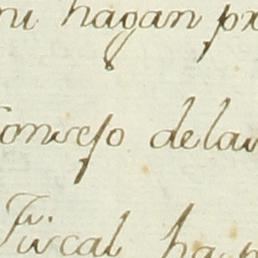 ni hagan pr
Consejo dela
Fiscal ha